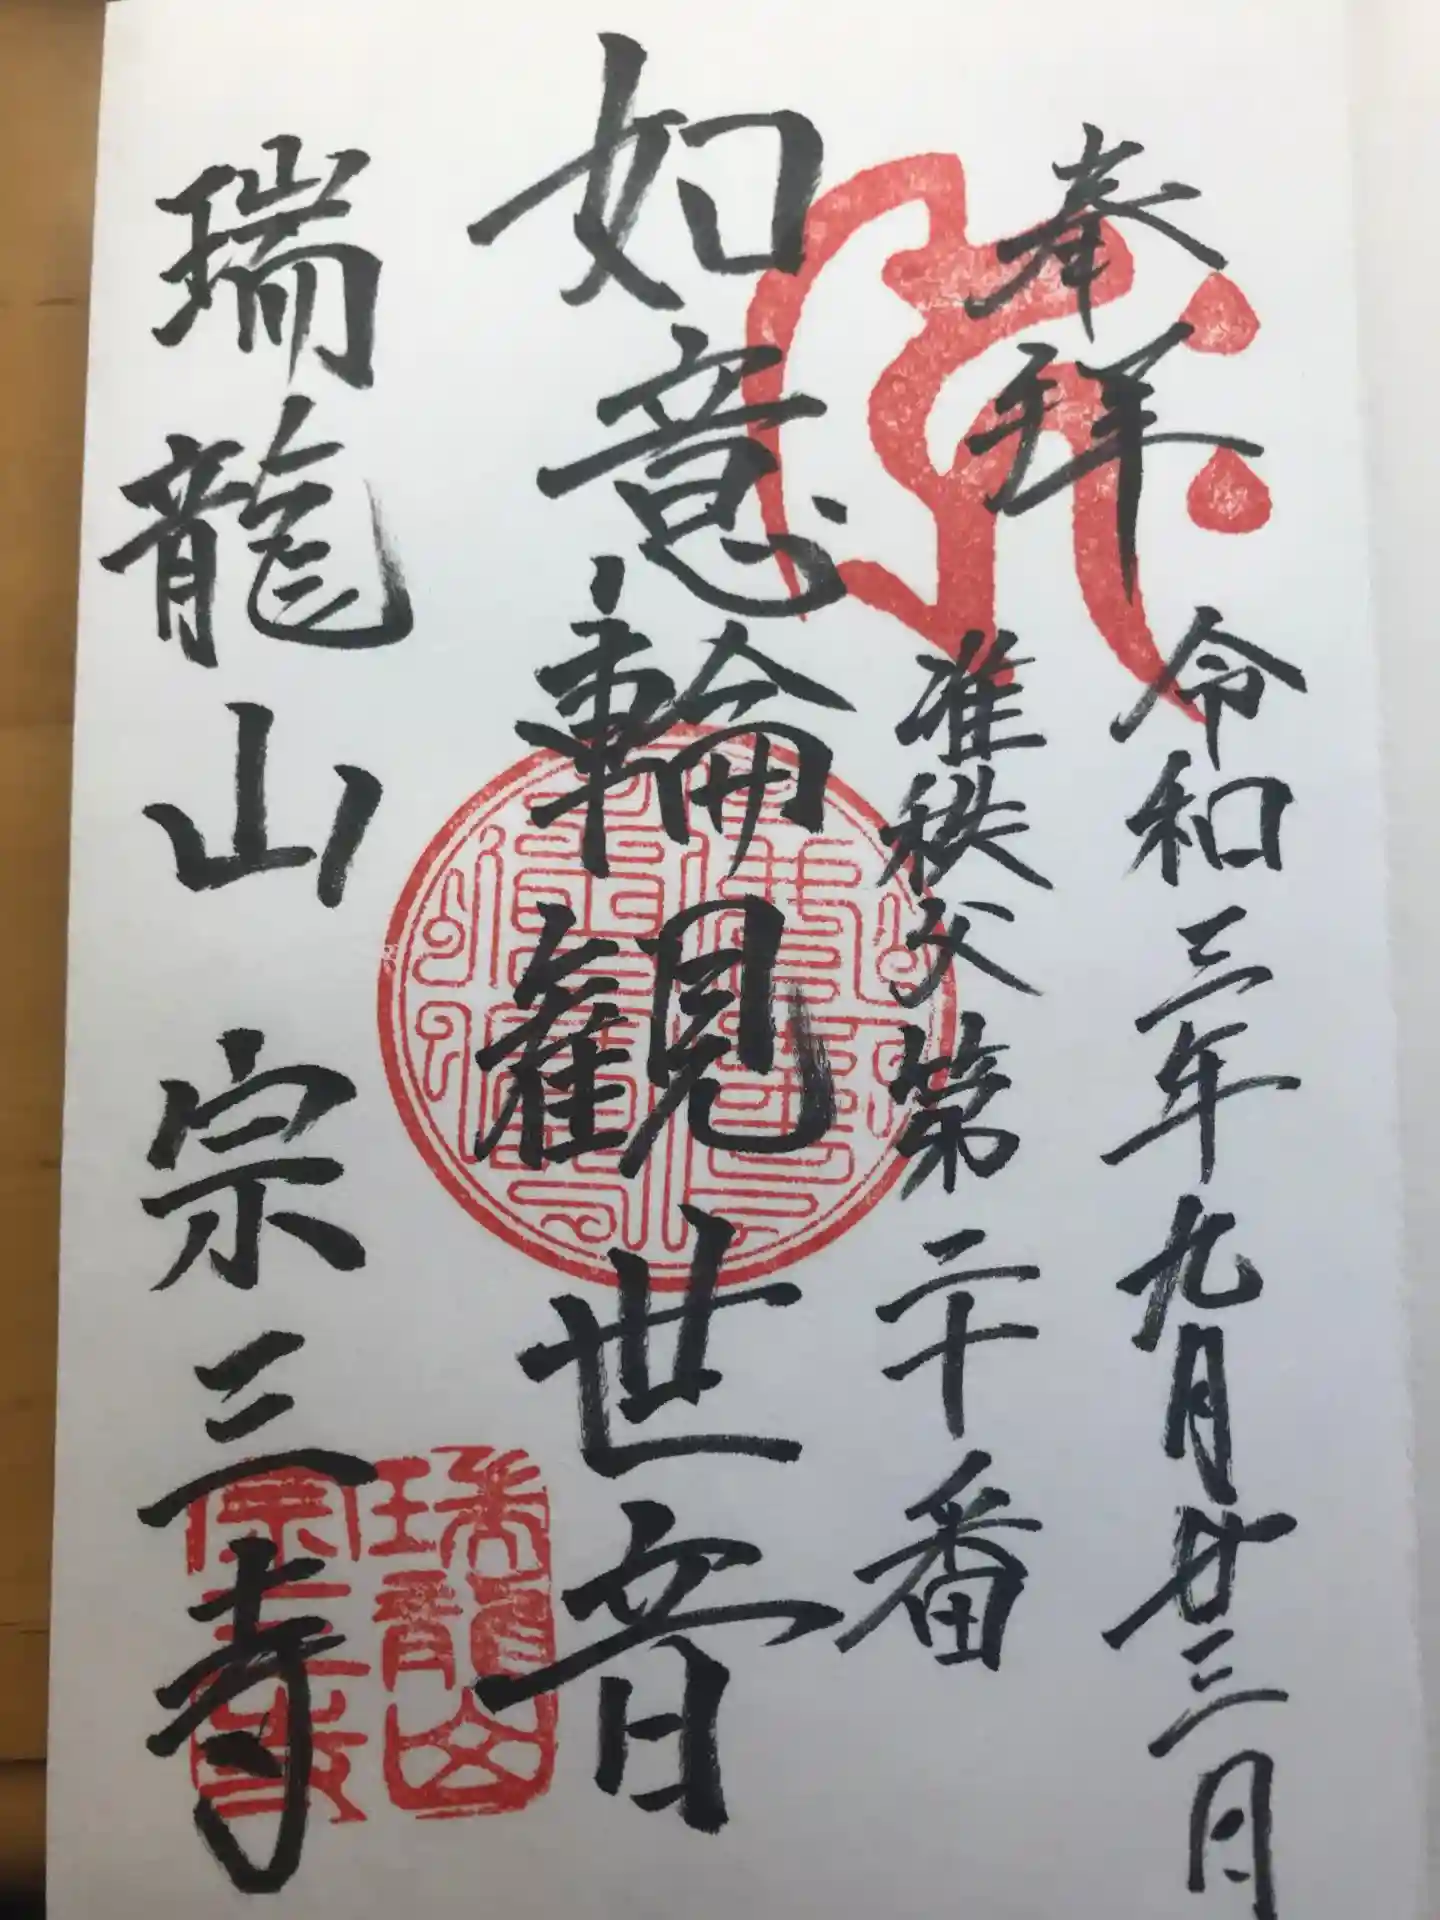 奉拜
令和三年九月廿三日
准秩父第二十番
如意輪観世音
瑞龍山宗三寺
瑞龍山
宗三寺